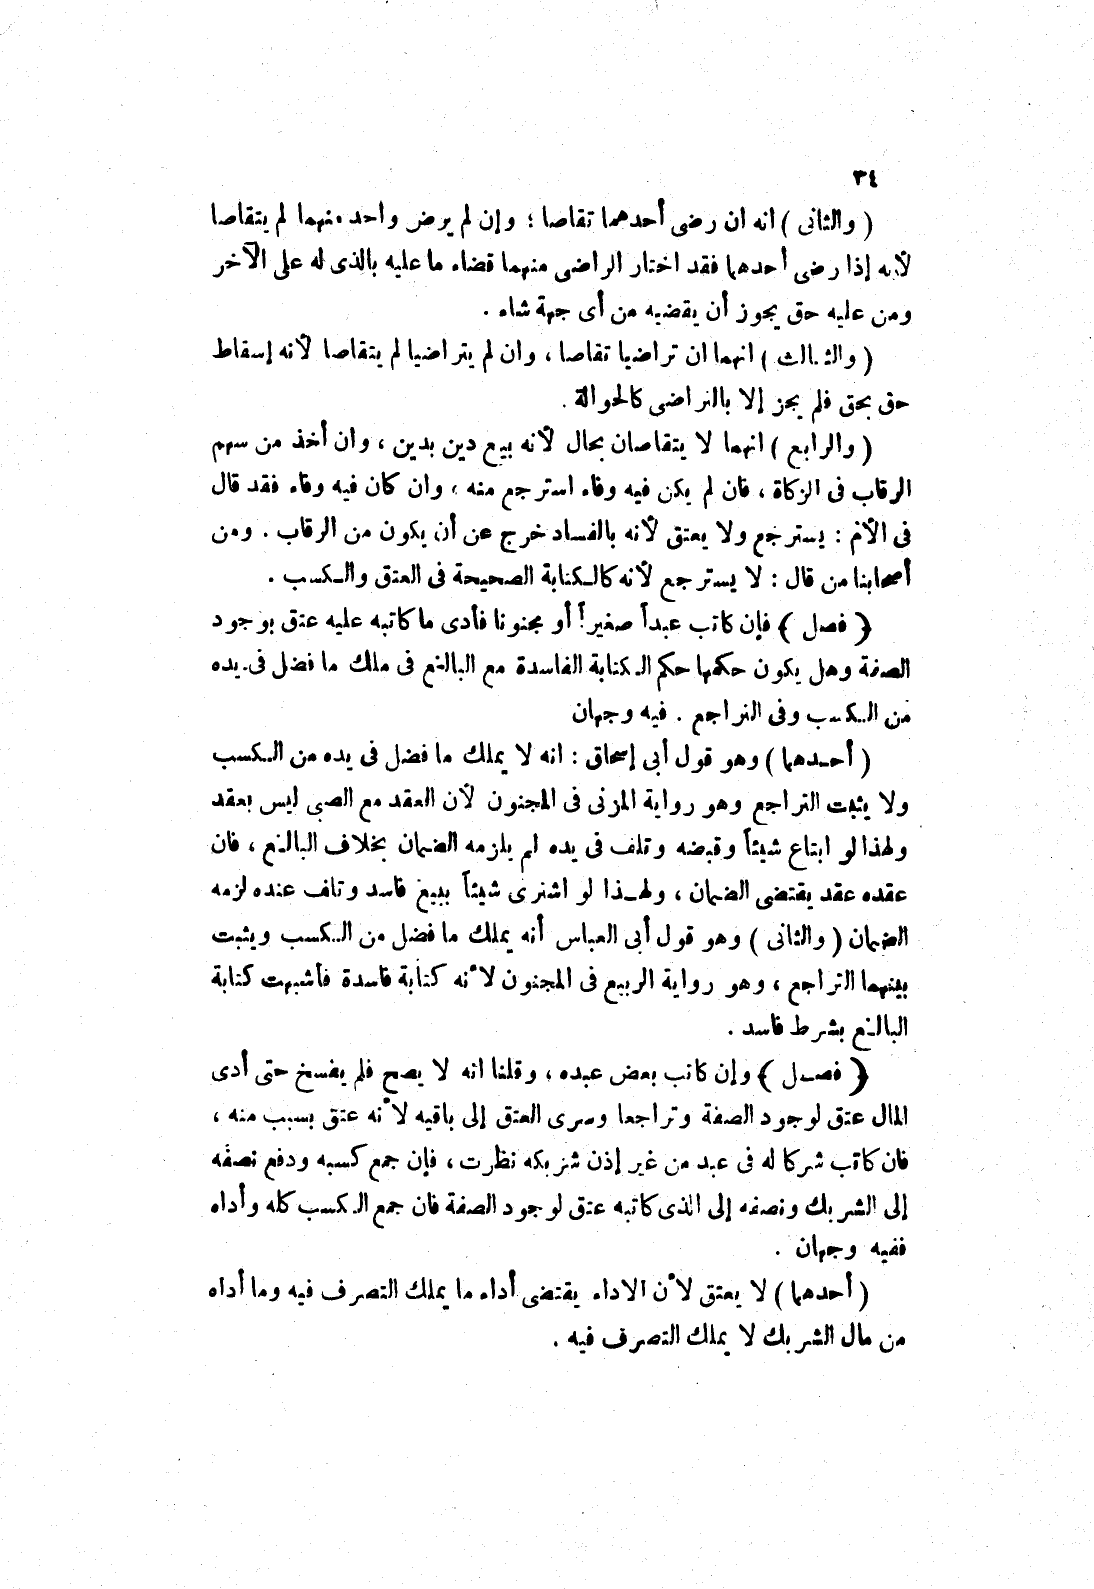 ٣٤
( والثانى ) انه ان رضى أحدهما تقاصا ؛ وإن لم يرض واحد منهما لم يتقاصا
لأنه إذا رضى أحدهما فقد اختار الراضى منهما قضاء ما عليه بالذى له على الآخر
ومن عليه حق يجوز أن يقضيه من أى جهة شاء .
( والثـالث ) انهما ان تراضيا تقاصا ، وان لم يتراضيا لم يتقاصا لأنه إسقاط
حق بحق فلم يجز إلا بالتراضى كالحوالة .
( والرابع ) انهما لا يتقاصان بحال لأنه بيع دين بدين ، وان أخذ من سهم
الرقاب فى الزكاة ، فان لم يكن فيه وفاء استرجع منه ، وان كان فيه وفاء فقد قال
فى الأم : يسترجع ولا يعتق لأنه بالفساد خرج عن أن يكون من الرقاب . ومن
أصحابنا من قال : لا يسترجع لأنه كالكتابة الصحيحة فى العتق والكسب .
﴿ فصل ﴾ فإن كاتب عبداً صغيراً أو مجنونا فأدى ما كاتبه عليه عتق بوجود
الصفة وهل يكون حكمها حكم الكتابة الفاسدة مع البالغ فى ملك ما فضل فى يده
من الكسب وفى التراجع . فيه وجهان
( أحـدهما ) وهو قول أبى إسحاق : انه لا يملك ما فضل فى يده من الكسب
ولا يثبت التراجع وهو رواية المزنى فى المجنون لأن العقد مع الصبى ليس بعقد
ولهذا لو ابتاع شيئاً وقبضه وتلف فى يده لم يلزمه الضمان بخلاف البالغ ، فان
عقده عقد يقتضى الضمان ، ولهـذا لو اشترى شيئاً ببيع فاسد وتلف عنده لزمه
الضمان ( والثانى ) وهو قول أبى العباس أنه يملك ما فضل من الكسب ويثبت
بينهما التراجع ، وهو رواية الربيع فى المجنون لأنه كتابة فاسدة فأشبهت كتابة
البالغ بشرط فاسد .
﴿ فصـل ﴾ وإن كاتب بعض عبده ، وقلنا انه لا يصح فلم يفسخ حتى أدى
المال عتق لوجود الصفة وتراجعا وسرى العتق إلى باقيه لأنه عتق بسبب منه ،
فان كاتب شركا له فى عبد من غير إذن شريكه نظرت ، فإن جمع كسبه ودفع نصفه
إلى الشريك ونصفه إلى الذى كاتبه عتق لوجود الصفة فان جمع الكسب كله وأداه
ففيه وجهان .
( أحدهما ) لا يعتق لأن الاداء يقتضى أداء ما يملك التصرف فيه وما أداه
من مال الشريك لا يملك التصرف فيه .